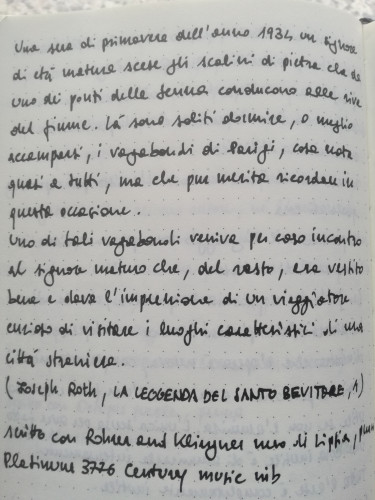 Una sera di primavera dell'anno 1934 un signore
di età matura scese gli scalini di pietra che da
uno dei ponti della Senna conducono alle rive
del fiume. Là sono soliti dormire, o meglio
accamparsi, i vagabondi di Parigi, cosa nota
quasi a tutti, ma che pur merita ricordare in
questa occasione.
Uno di tali vagabondi veniva per caso incontro
al signore maturo che, del resto, era vestito
bene e dava l'impressione di un viaggiatore
curioso di visitare i luoghi caratteristici di una
città straniera.
(Joseph Roth, LA LEGGENDA DEL SANTO BEVITORE, 1)
scritto con Rohrer and Klingner nero di Lipsia,
Platinum 3776 Century music nib